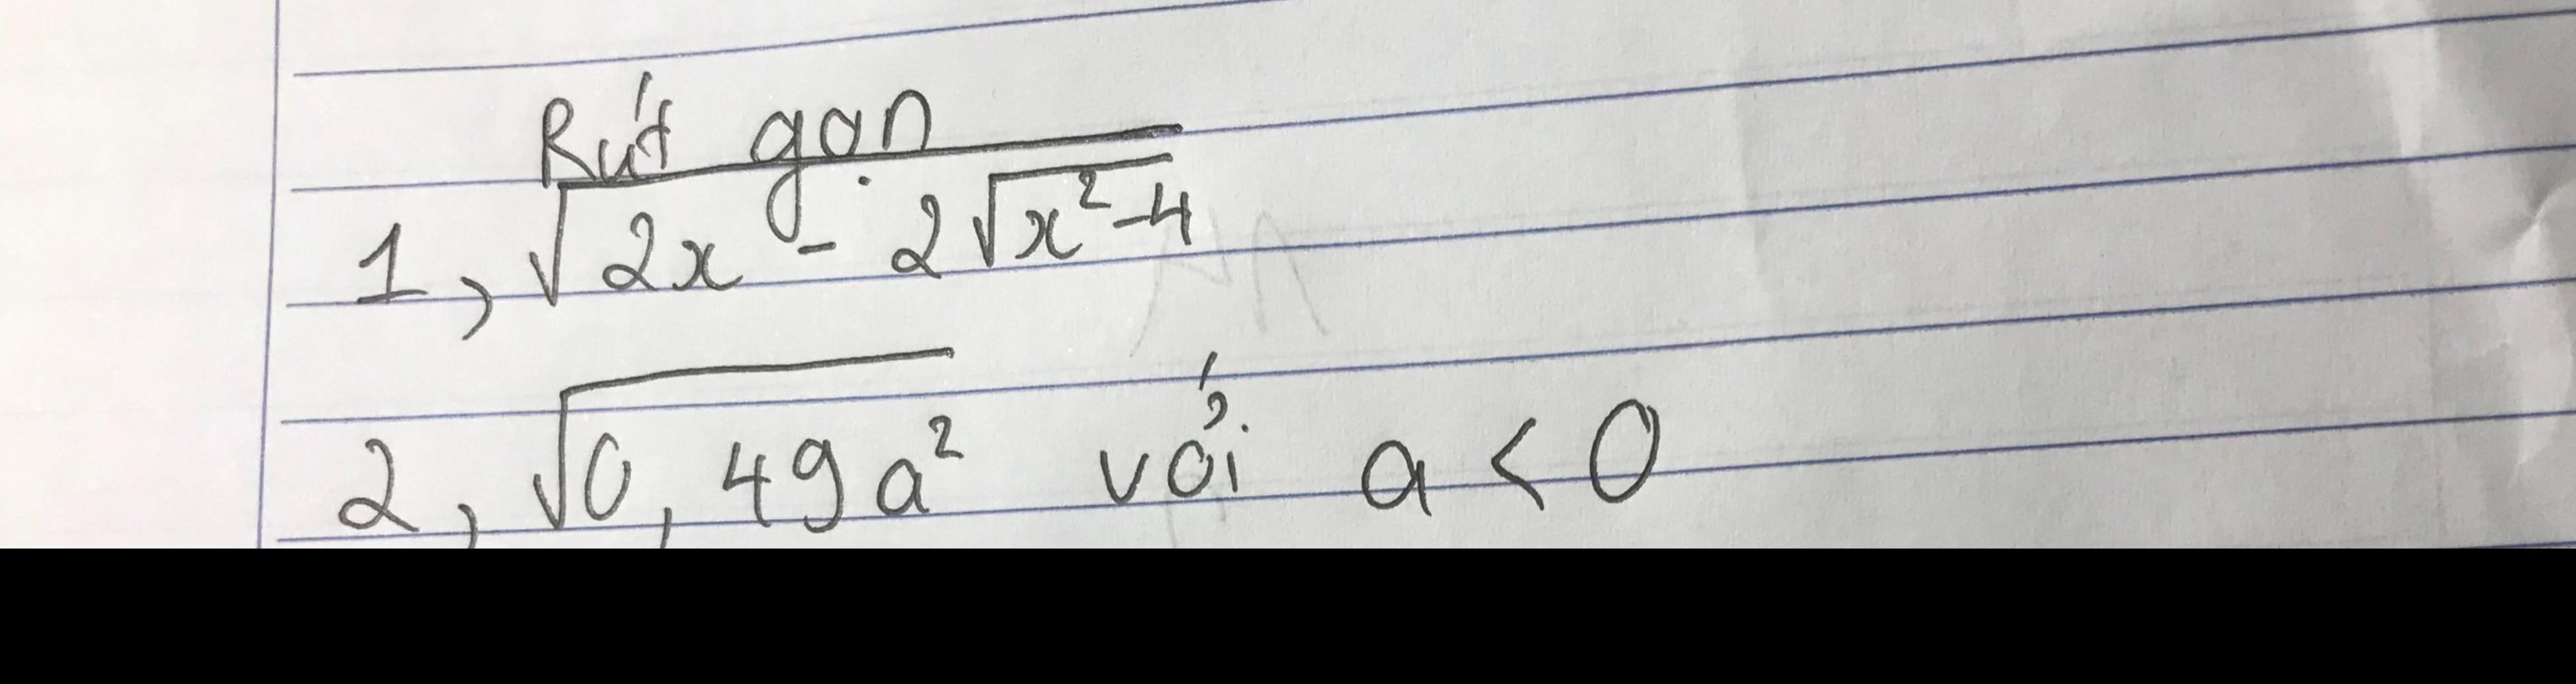 Rút gọn
1, √(2x - 2√(x²-4))
2, √(0,49a²) với a < 0